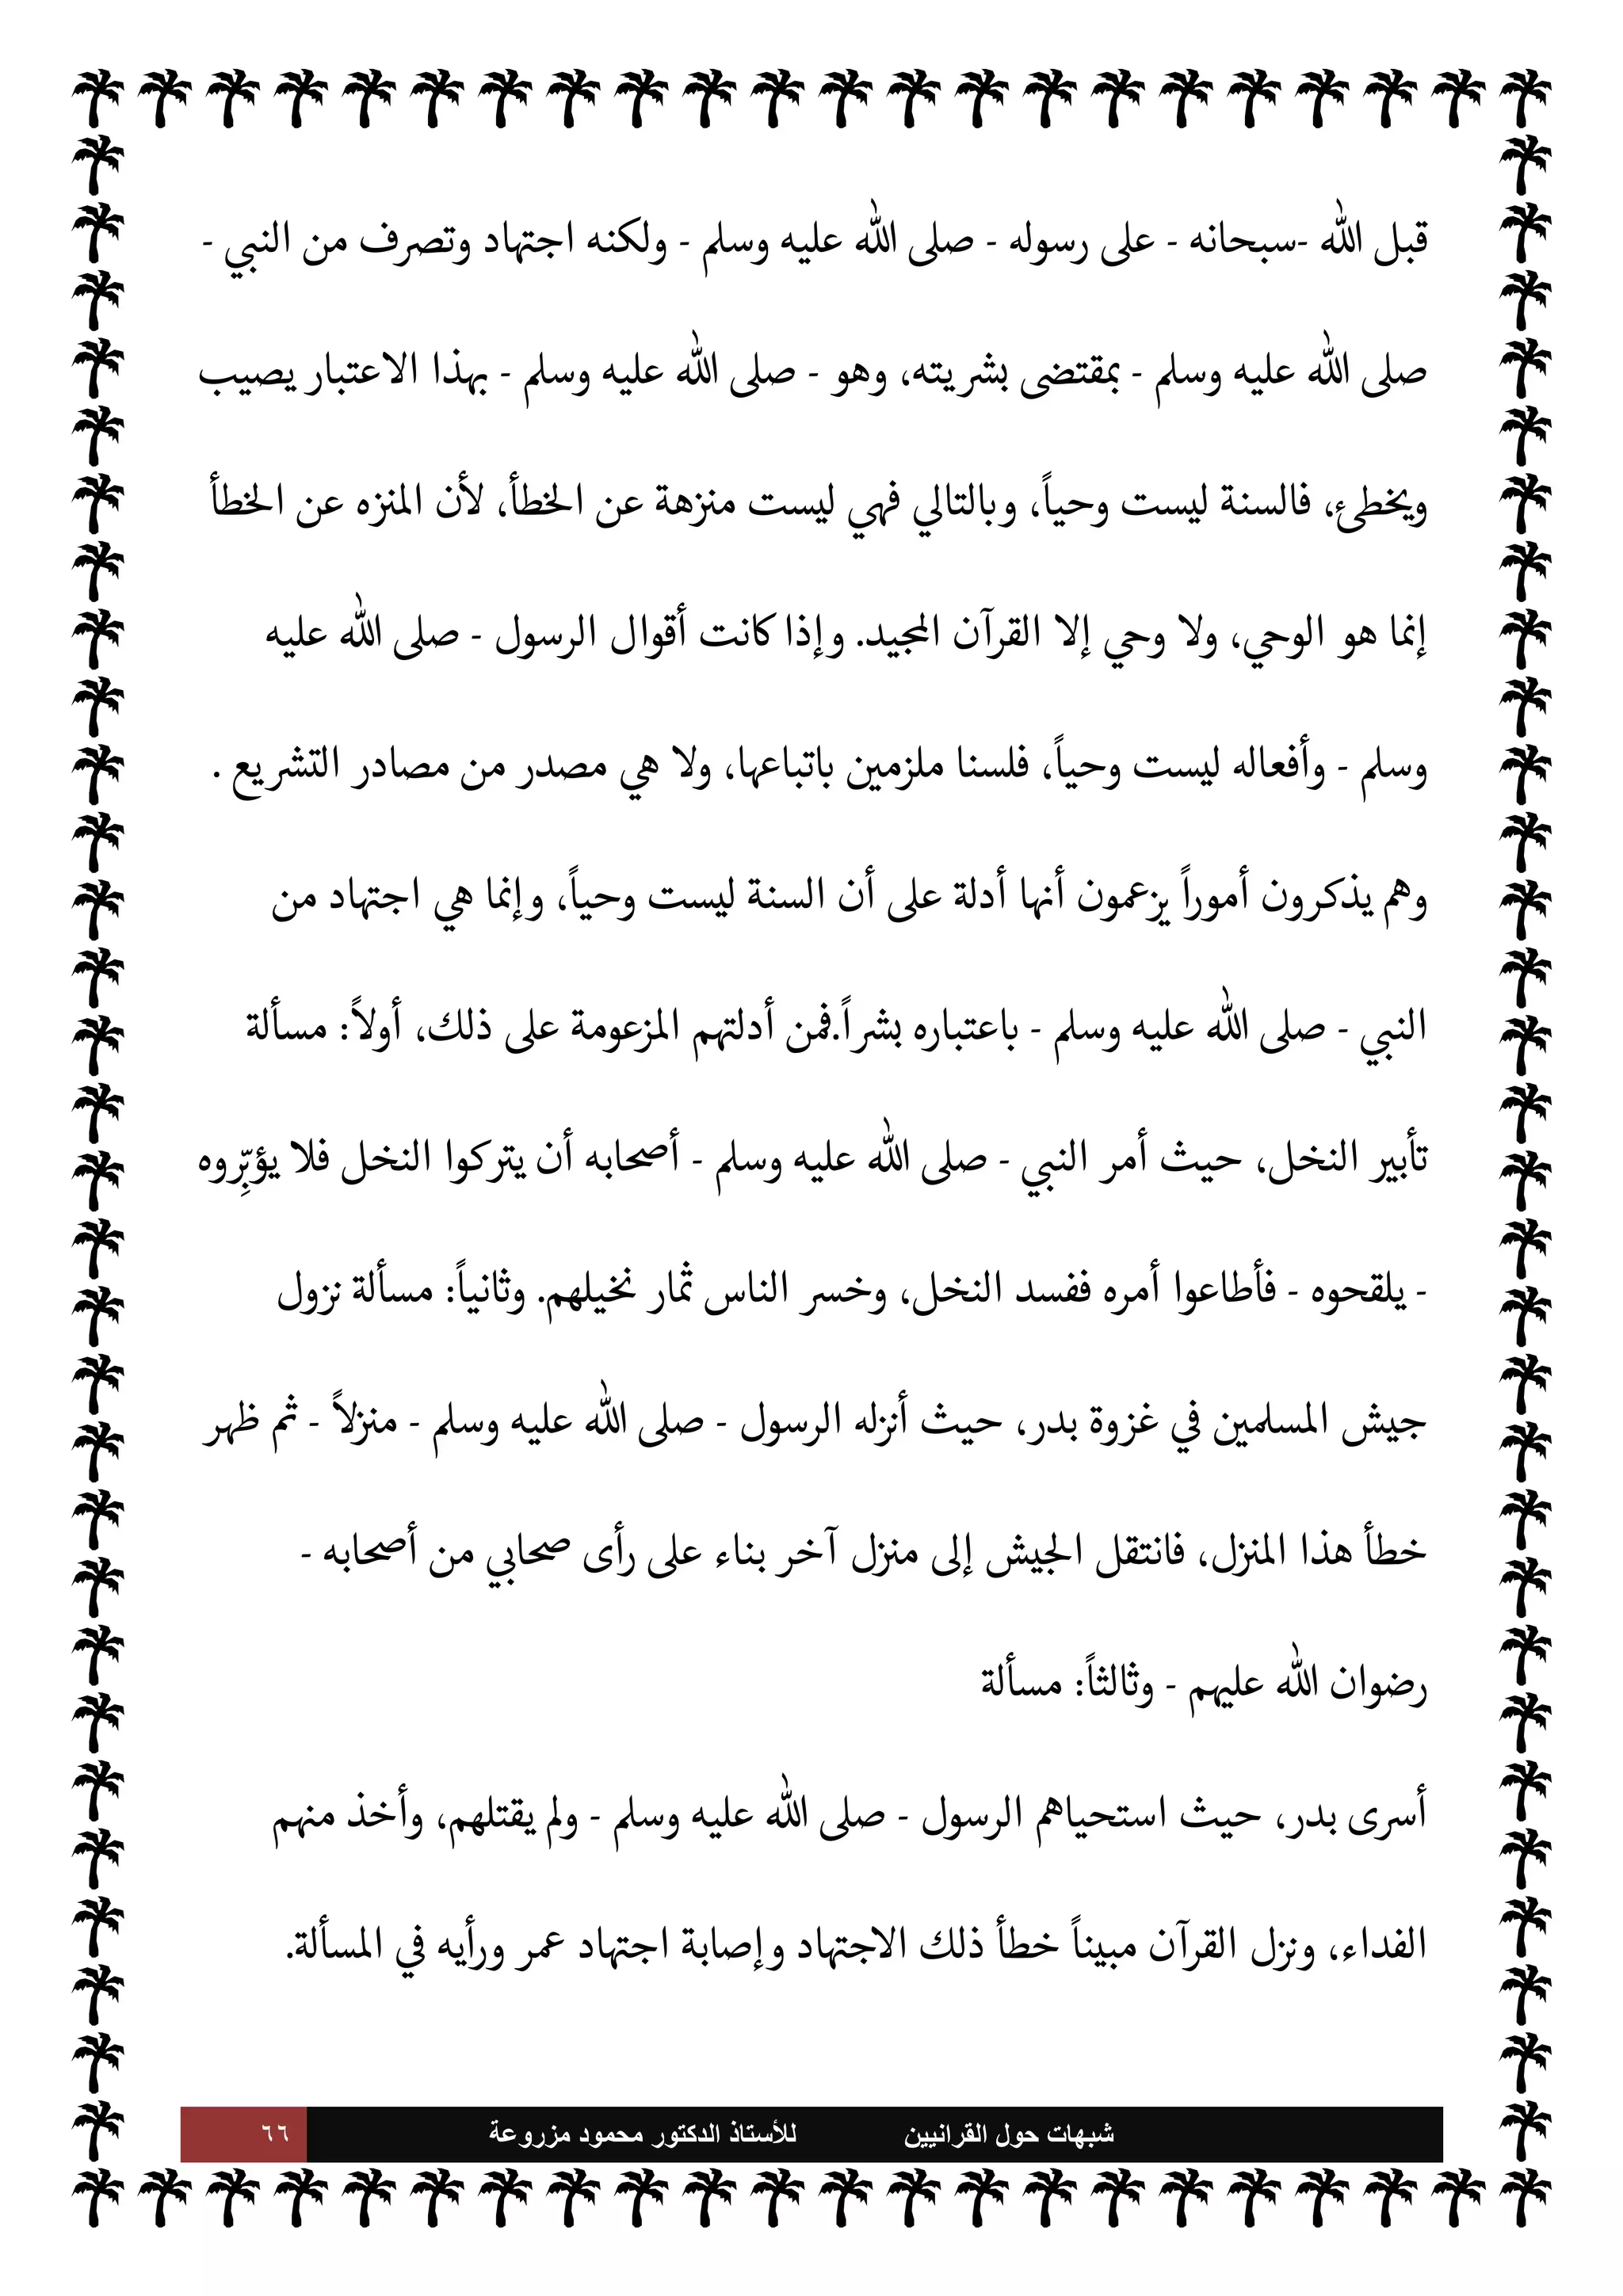 قبل الله -سبحانه - على رسوله - صلى الله عليه وسلم - ولكنه اجتهاد وتصرف من النبي -
صلى الله عليه وسلم - بمقتضى بشريته، وهو - صلى الله عليه وسلم - بهذا الاعتبار يصيب
ويخطئ، فالسنة ليست وحياً، وبالتالي فهي ليست منزهة عن الخطأ، لأن المنزه عن الخطأ
إنما هو الوحي، ولا وحي إلا القرآن المجيد. وإذا كانت أقوال الرسول - صلى الله عليه
وسلم - وأفعاله ليست وحياً، فلسنا ملزمين باتباعها، ولا هي مصدر من مصادر التشريع .
وهم يذكرون أموراً يزعمون أنها أدلة على أن السنة ليست وحياً، وإنما هي اجتهاد من
النبي - صلى الله عليه وسلم - باعتباره بشراً.فمن أدلتهم المزعومة على ذلك، أولاً: مسألة
تأبير النخل، حيث أمر النبي - صلى الله عليه وسلم - أصحابه أن يتركوا النخل فلا يؤبِّروه
- يلقحوه - فأطاعوا أمره ففسد النخل، وخسر الناس ثمار نخيلهم. وثانياً: مسألة نزول
جيش المسلمين في غزوة بدر، حيث أنزله الرسول - صلى الله عليه وسلم - منزلاً - ثم ظهر
خطأ هذا المنزل، فانتقل الجيش إلى منزل آخر بناء على رأى صحابي من أصحابه -
رضوان الله عليهم - وثالثاً: مسألة
أسرى بدر، حيث استحياهم الرسول - صلى الله عليه وسلم - ولم يقتلهم، وأخذ منهم
الفداء، ونزل القرآن مبيناً خطأ ذلك الاجتهاد وإصابة اجتهاد عمر ورأيه في المسألة.
شبهات حول القرانيين للأستاذ الدكتور محمود مزروعة ٦٦